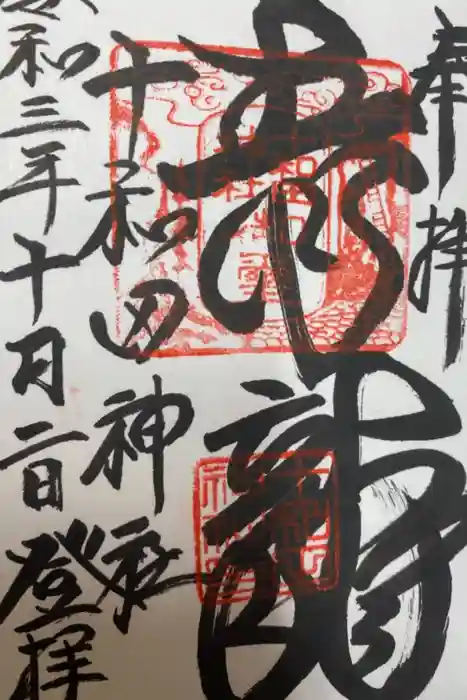 奉拝
青龍
十和田神社
令和三年十月二日登拝